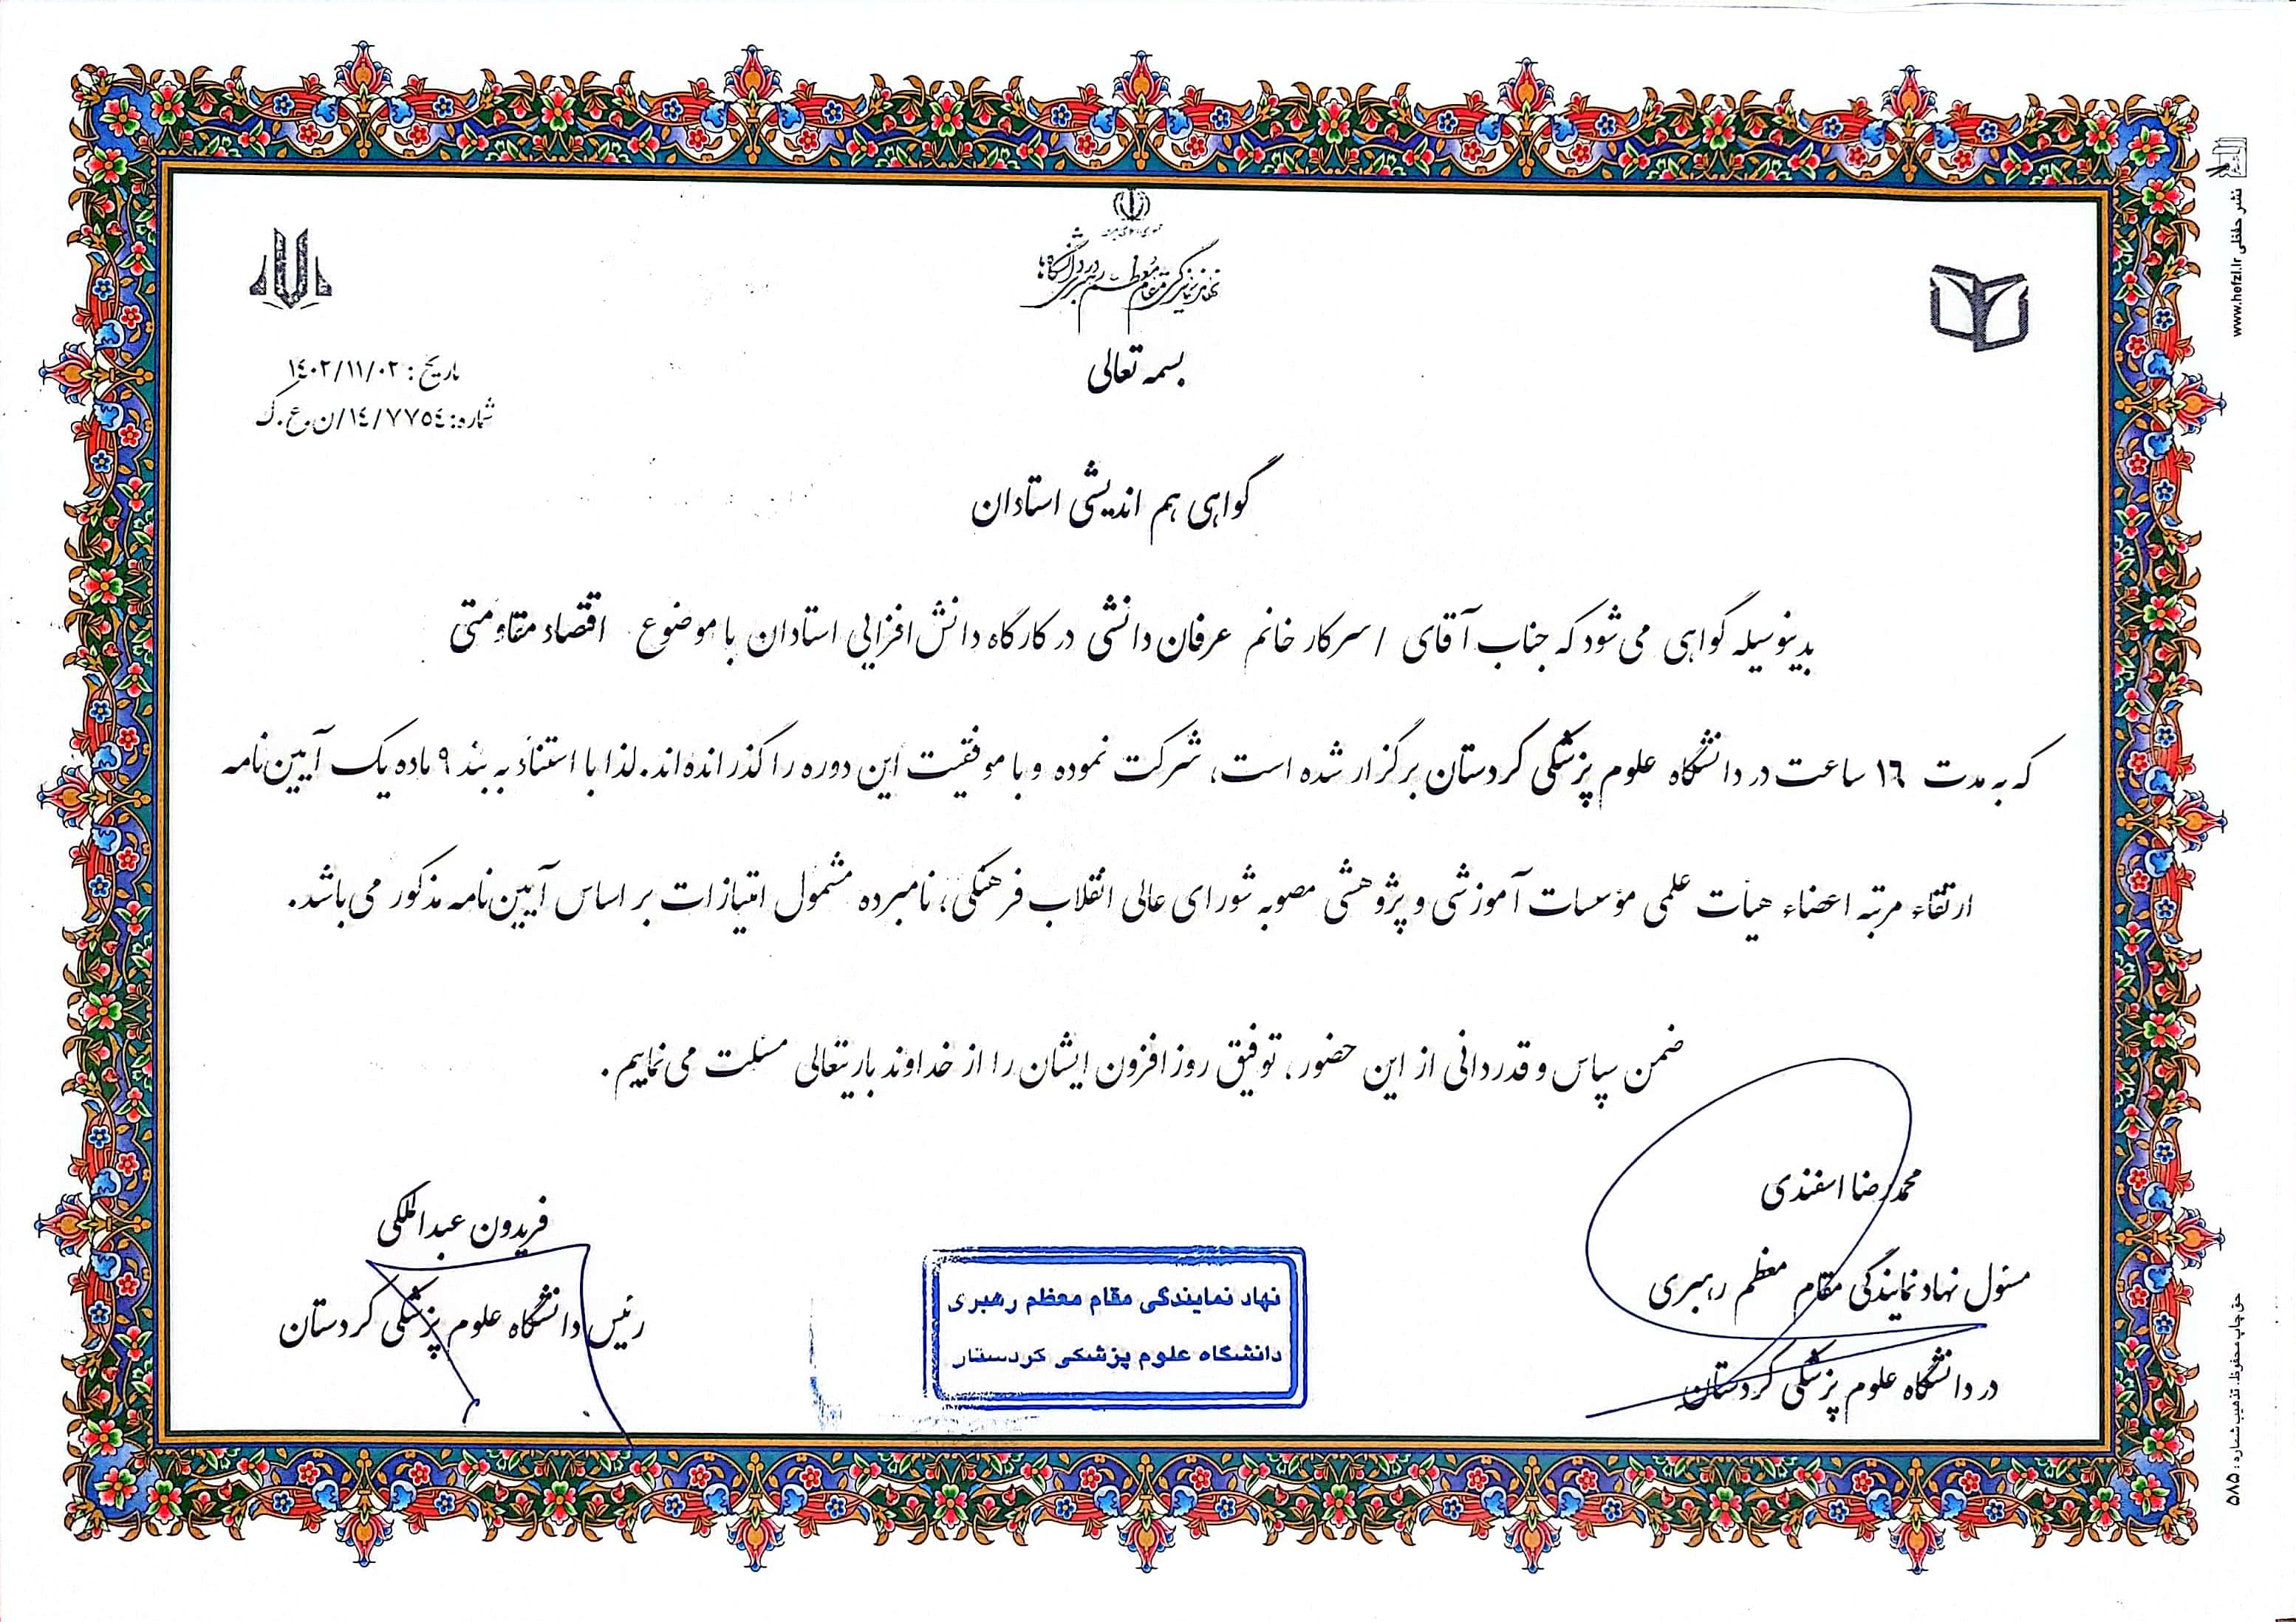 جمهوری اسلامی ایران
نهاد نمایندگی مقام معظم رهبری در دانشگاه‌ها
بسمه تعالی
تاریخ : ١٤٠٢/١١/٠٢
شماره: ١٤/٧٧٥٤/ن.ع.ک
گواهی هم اندیشی استادان
بدینوسیله گواهی می‌شود که جناب آقای / سرکار خانم عرفان دانشی در کارگاه دانش افزایی استادان با موضوع اقتصاد مقاومتی
که به مدت ١٦ ساعت در دانشگاه علوم پزشکی کردستان برگزار شده است، شرکت نموده و با موفقیت این دوره را گذرانده‌اند. لذا با استناد به بند ٩ ماده یک آیین‌نامه
ارتقاء مرتبه اعضاء هیأت علمی مؤسسات آموزشی و پژوهشی مصوبه شورای عالی انقلاب فرهنگی، نامبرده مشمول امتیازات بر اساس آیین‌نامه مذکور می‌باشد.
ضمن سپاس و قدردانی از این حضور، توفیق روز افزون ایشان را از خداوند باریتعالی مسئلت می‌نماییم.
محمدرضا اسفندی
مسئول نهاد نمایندگی مقام معظم رهبری
در دانشگاه علوم پزشکی کردستان
نهاد نمایندگی مقام معظم رهبری
دانشگاه علوم پزشکی کردستان
فریدون عبدالملکی
رئیس دانشگاه علوم پزشکی کردستان
نشر حفظی www.hefzi.ir
حق چاپ محفوظ. تذهیب شماره: ۵۸۵